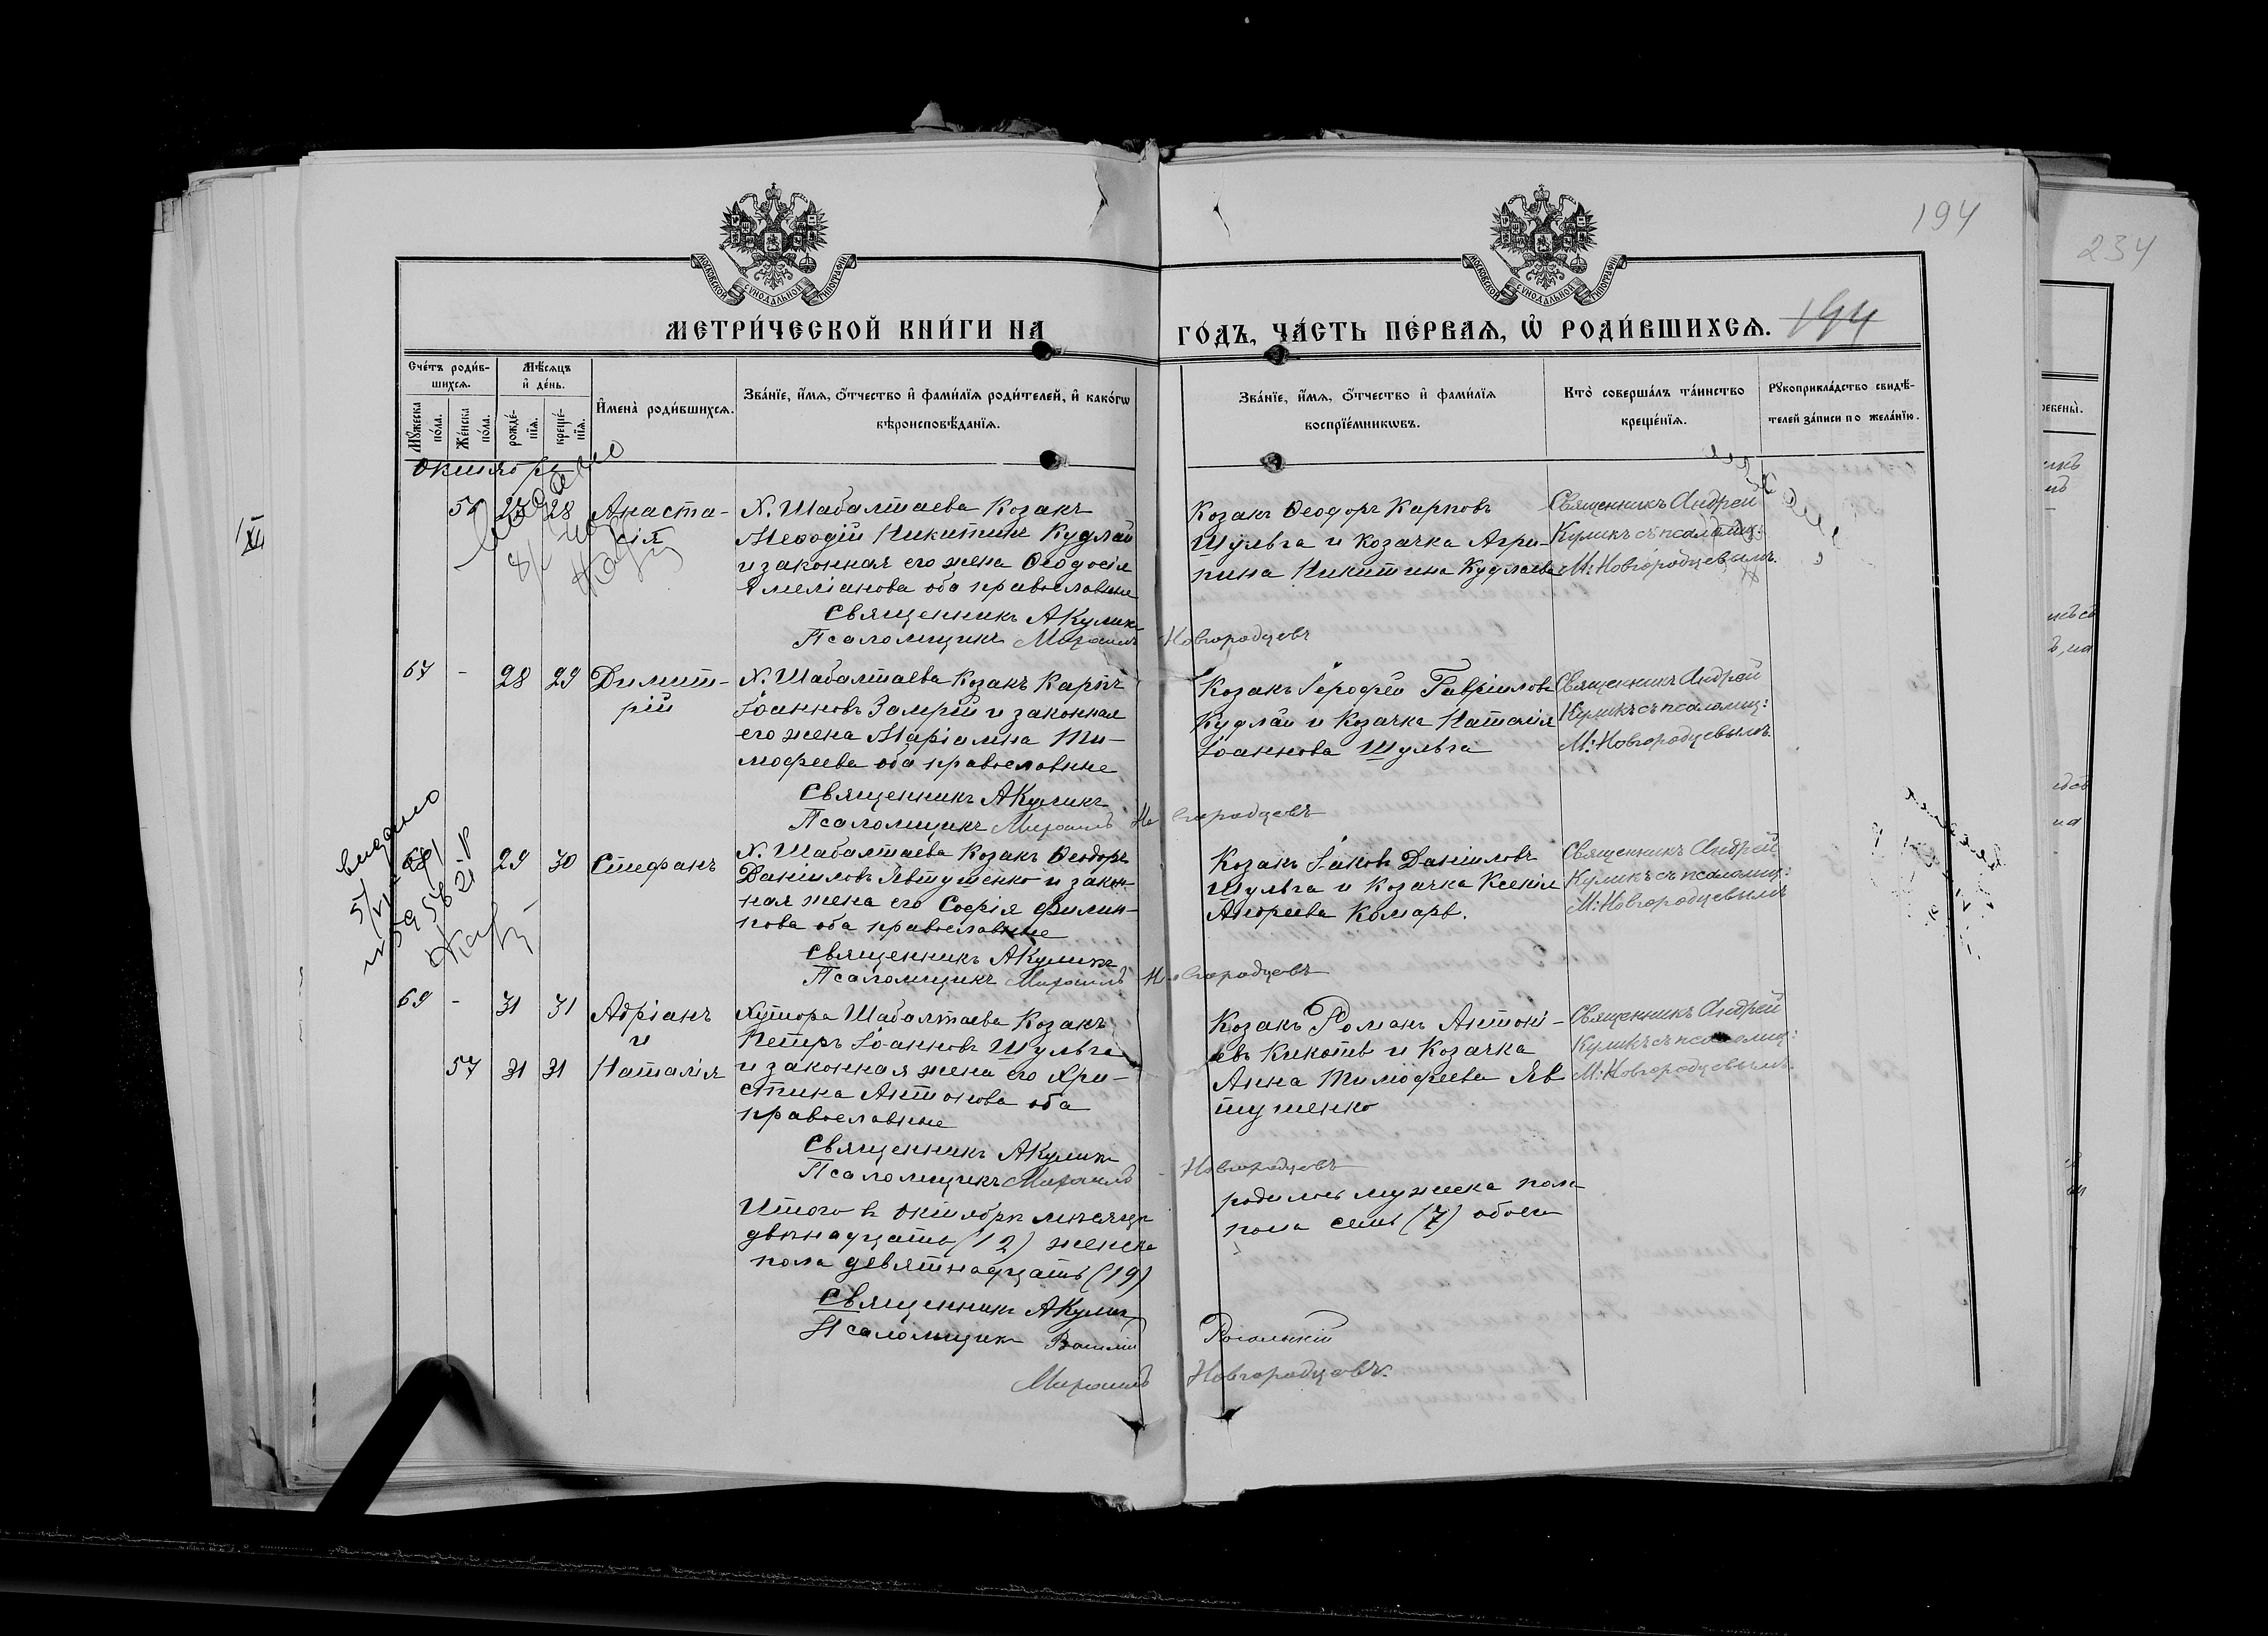 194
234
МОСКОВСКОЙ СУНОДАЛЬНОЙ ТИПОГРАФІИ
МОСКОВСКОЙ СУНОДАЛЬНОЙ ТИПОГРАФІИ
МЕТРИ́ЧЕСКОЙ КНИ́ГИ НА
ГО́ДЪ, ЧА́СТЬ ПЕ́РВАѦ, Ѡ҆ РОДИ́ВШИХСѦ.
194
Сче́тъ роди́в-
шихсѧ.
Мѣ́сѧцъ
и҆ де́нь.
Мꙋ́жеска по́ла.
Же́нска по́ла.
рожде́-нїѧ.
креще́-нїѧ.
И҆мена̀ роди́вшихсѧ.
Зва́нїе, и҆́мѧ, ѻ҆́тчество и҆ фами́лїѧ роди́телей, и҆ како́гѡ
вѣроисповѣ́данїѧ.
Зва́нїе, и҆́мѧ, ѻ҆́тчество и҆ фами́лїѧ
воспрїе́мникѡвъ.
Кто̀ соверша́лъ та́инство
креще́нїѧ.
Рꙋкоприкла́дство свидѣ́-
телей за́писи по жела́нїю.
Октябрь
56 25 28 Анаста-
сія
Х. Шабалтаева Козакъ
Меѳодій Никитинъ Кудлай
и законная его жена Ѳеодосія
Емеліанова оба православные
Священникъ А Куликъ
Псаломщикъ Михаилъ Новгородцевъ
Козакъ Ѳеодоръ Карповъ
Шульга и козачка Агри-
пина Никитина Кудлаева
Священникъ Андрей
Куликъ съ псаломщ:
М: Новгородцевымъ.
67 - 28 29 Димит-
рій
Х. Шабалтаева Козакъ Карпъ
Іоанновъ Замрій и законная
его жена Маріамна Ти-
мофеева оба православные
Священникъ А Куликъ
Псаломщикъ Михаилъ Новгородцевъ
Козакъ Іерофей Гавріиловъ
Кудлай и Козачка Наталія
Іоаннова Шульга
Священникъ Андрей
Куликъ съ псаломщ:
М: Новгородцевымъ.
выдано
29 30 Стефанъ
Х. Шабалтаева Козакъ Ѳеодоръ
Даніиловъ Явтушенко и закон-
ная жена его Софія Филип-
пова оба православные
Священникъ А Куликъ
Псаломщикъ Михаилъ Новгородцевъ
Козакъ Іаковъ Даніиловъ
Шульга и Козачка Ксенія
Андреева Комарь.
Священникъ Андрей
Куликъ съ псаломщ:
М: Новгородцевымъ
69 - 31 31 Адріанъ
и
57 31 31 Наталія
Хутора Шабалтаева Козакъ
Петръ Іоанновъ Шульга
и законная жена его Хри-
стина Антонова оба
православные
Священникъ А Куликъ
Псаломщикъ Михаилъ Новгородцевъ
Козакъ Романъ Антоні-
евъ Кикоть и Козачка
Анна Тимофеева Яв
тушенко
Священникъ Андрей
Куликъ съ псаломщ:
М: Новгородцевымъ.
Итого въ Октябрѣ мѣсяцѣ родилось мужеска пола
двѣнадцать (12) женска пола семь (7) обоего
пола девятнадцать (19)
Священникъ А Куликъ
Псаломщикъ Василій Рогальскій
Михаилъ Новгородцевъ.